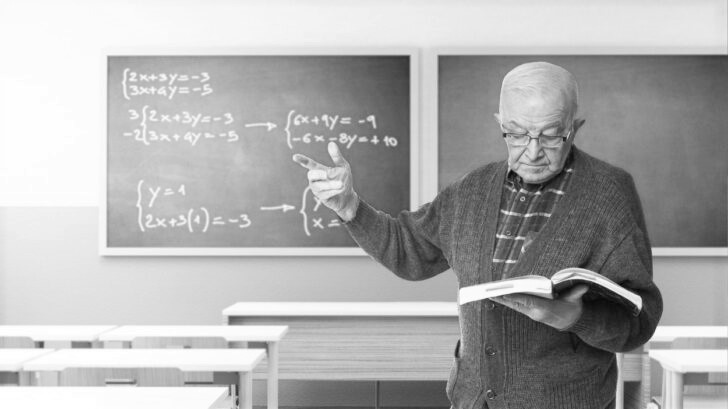 2x+3y=-3
3x+4y=-5
3 2x+3y=-3
-2 3x+4y=-5
6x+9y=-9
-6x-8y=+10
y=1
2x+3(1)=-3
x=